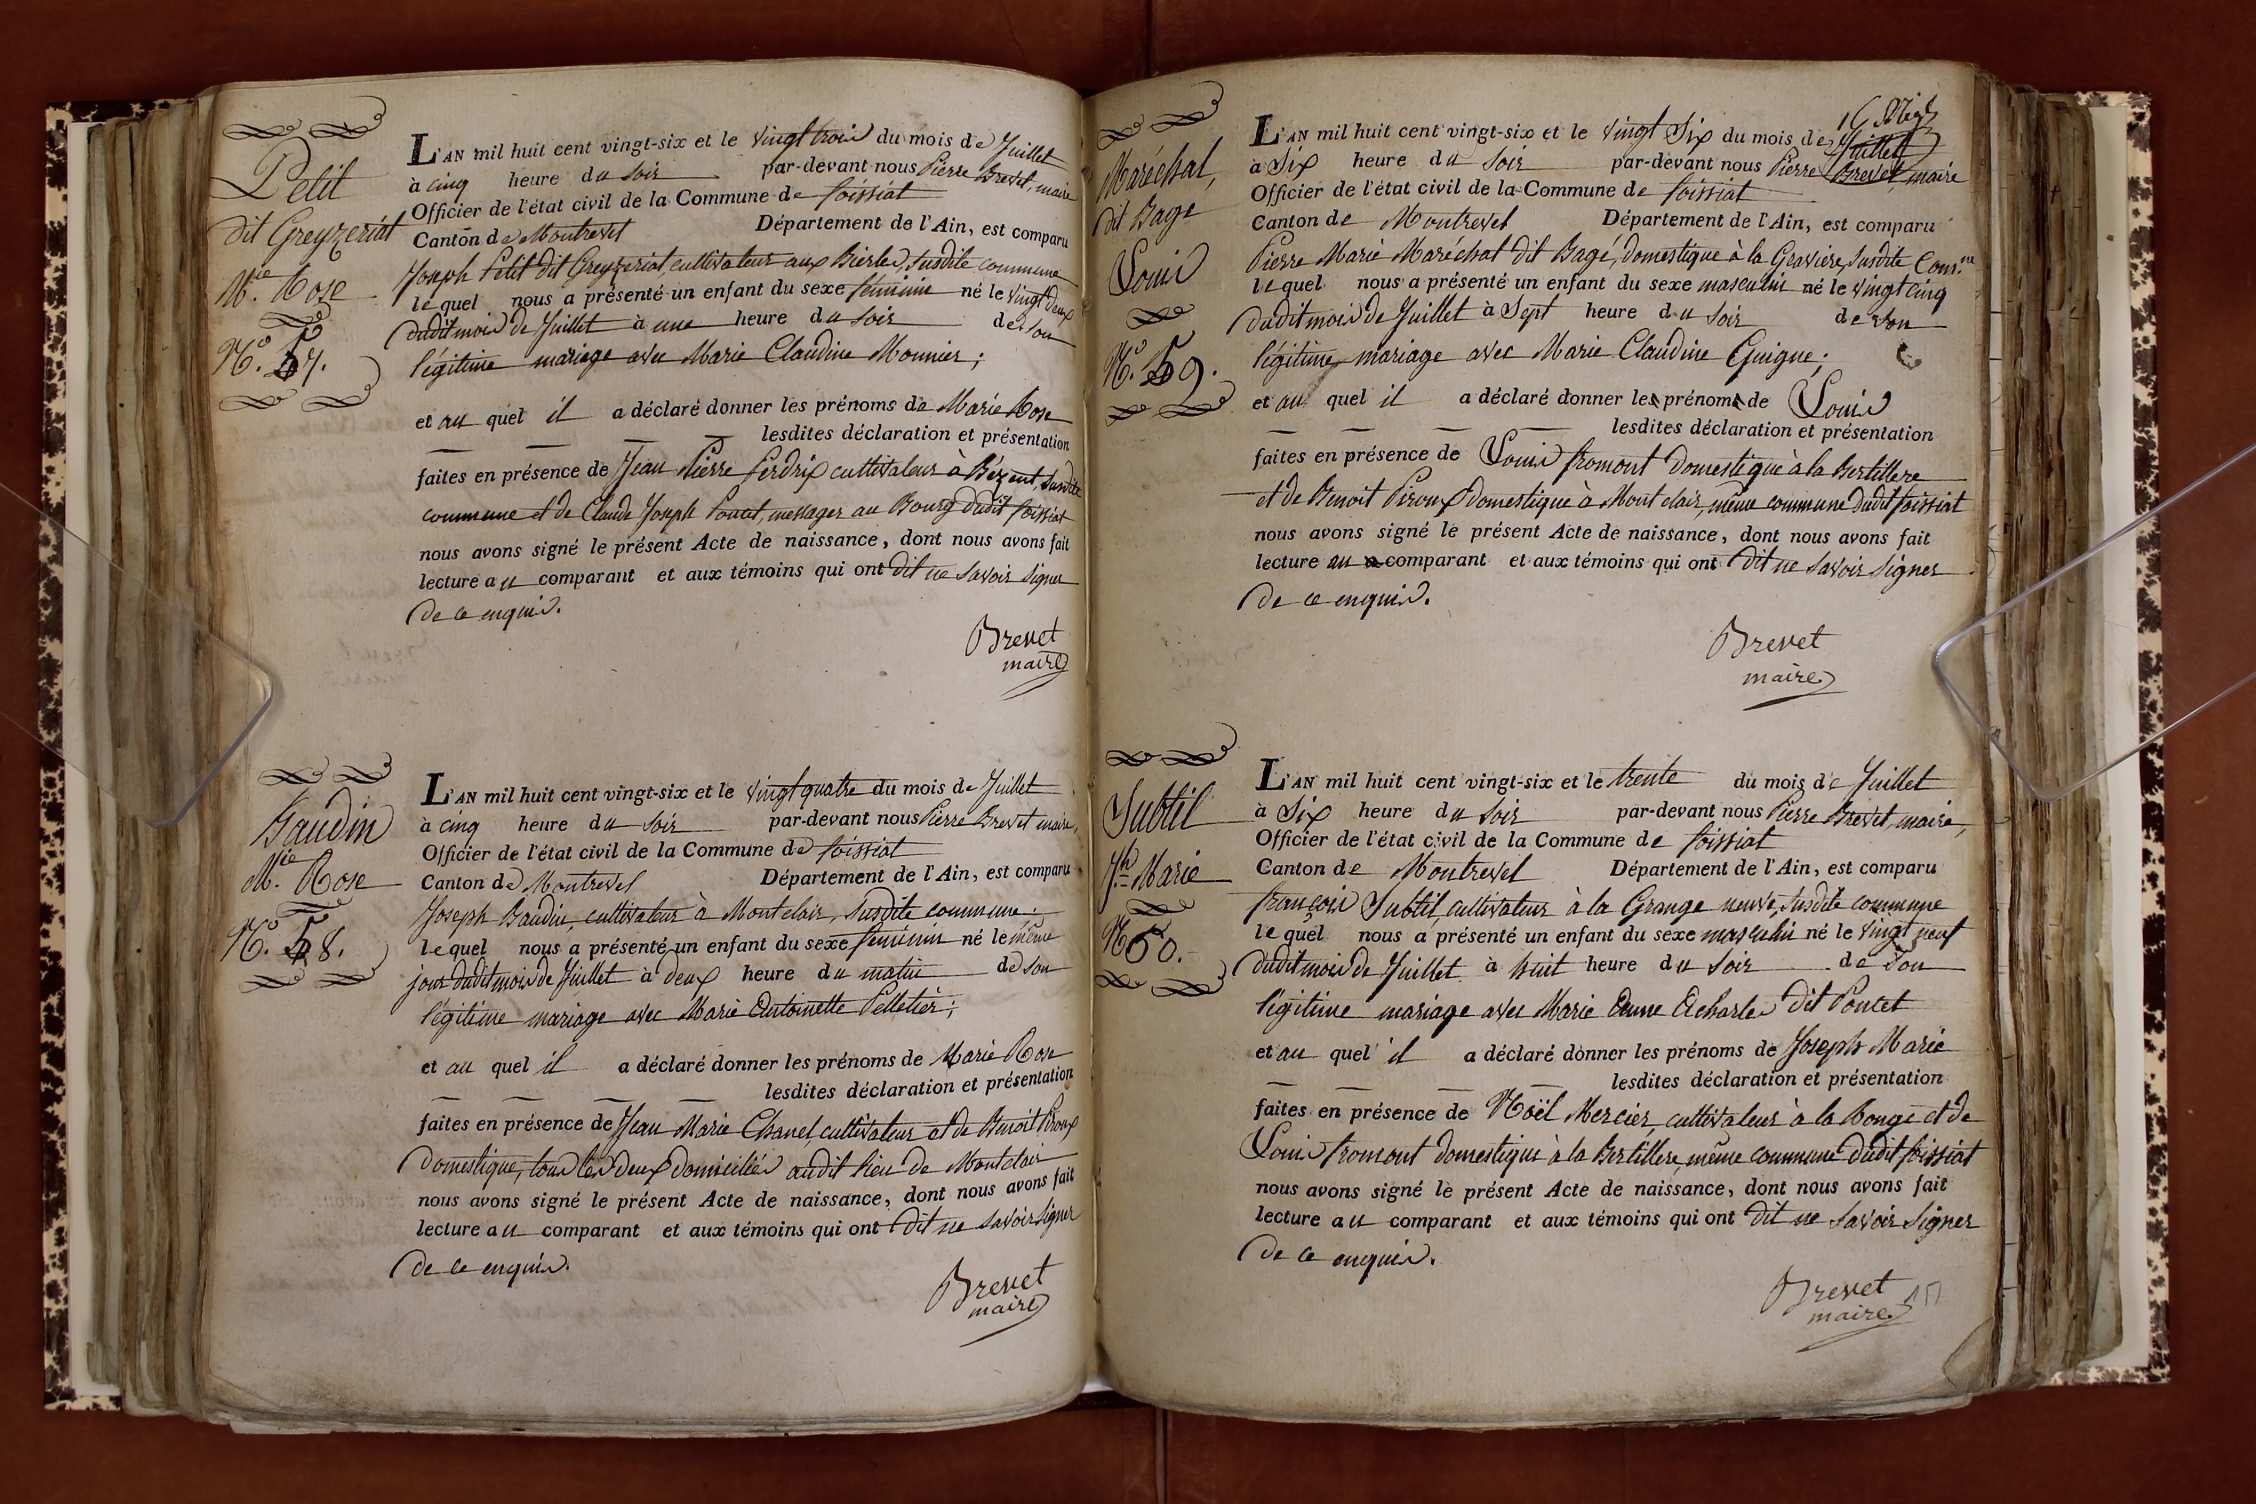 Petit
dit Greyzeriat
M.ie Rose
N.o 57.
L'AN mil huit cent vingt-six et le vingt trois du mois de Juillet
à cinq heure du soir par-devant nous Pierre Brevet, maire
Officier de l'état civil de la Commune de foissiat
Canton de Montrevel Département de l'Ain, est comparu
Joseph Petit dit Greyzeriat, cultivateur aux Bierles, susdite commune
lequel nous a présenté un enfant du sexe féminin né le vingt deux
dudit mois de Juillet à une heure du soir de son
légitime mariage avec Marie Claudine Monnier;
et au quel il a déclaré donner les prénoms de Marie Rose
lesdites déclaration et présentation
faites en présence de Jean Pierre Perdrix cultivateur à Bézent, susdite
commune et de Claude Joseph Poncet, messager au Bourg dudit foissiat
nous avons signé le présent Acte de naissance, dont nous avons fait
lecture au comparant et aux témoins qui ont dit ne savoir signer
de ce enquis.
Brevet
maire
Gaudin
M.ie Rose
N.o 58.
L'AN mil huit cent vingt-six et le vingt quatre du mois de Juillet
à cinq heure du soir par-devant nous Pierre Brevet maire,
Officier de l'état civil de la Commune de foissiat
Canton de Montrevel Département de l'Ain, est comparu
Joseph Gaudin, cultivateur à Montclair, susdite commune.
lequel nous a présenté un enfant du sexe féminin né le même
jour dudit mois de Juillet à deux heure du matin de son
légitime mariage avec Marie Antoinette Pelletier;
et au quel il a déclaré donner les prénoms de Marie Rose
lesdites déclaration et présentation
faites en présence de Jean Marie Chanel, cultivateur et de Benoit Piroux
domestique, tous les deux domiciliés audit lieu de Montclair
nous avons signé le présent Acte de naissance, dont nous avons fait
lecture au comparant et aux témoins qui ont dit ne savoir signer
de ce enquis.
Brevet
maire
Maréchal,
dit Bagé
Louis
N.o 59.
L'AN mil huit cent vingt-six et le vingt Six du mois de Juillet
à Six heure du soir par-devant nous Pierre Brevet, maire
Officier de l'état civil de la Commune de foissiat
Canton de Montrevel Département de l'Ain, est comparu
Pierre Marie Maréchal dit Bagé, domestique à la Gravière, susdite Com.ne
lequel nous a présenté un enfant du sexe masculin né le vingt cinq
dudit mois de Juillet à Sept heure du soir de son
légitime mariage avec Marie Claudine Guigue;
et au quel il a déclaré donner les prénoms de Louis
lesdites déclaration et présentation
faites en présence de Louis fromont domestique à la Bertillere
et de Benoit Piroux domestique à Mont clair, même commune dudit foissiat
nous avons signé le présent Acte de naissance, dont nous avons fait
lecture au comparant et aux témoins qui ont dit ne savoir signer
de ce enquis.
Brevet
maire
Subtil
J.h Marie
N.o 60.
L'AN mil huit cent vingt-six et le trente du mois de Juillet
à Six heure du soir par-devant nous Pierre Brevet, maire,
Officier de l'état civil de la Commune de foissiat
Canton de Montrevel Département de l'Ain, est comparu
françois Subtil, cultivateur à la Grange neuve, susdite commune
lequel nous a présenté un enfant du sexe masculin né le vingt neuf
dudit mois de Juillet à huit heure du soir de son
légitime mariage avec Marie Anne Acharles dit Poncet
et au quel il a déclaré donner les prénoms de Joseph Marie
lesdites déclaration et présentation
faites en présence de Noël Mercier, cultivateur à la Ronge et de
Louis fromont domestique à la Bertillere, même commune dudit foissiat
nous avons signé le présent Acte de naissance, dont nous avons fait
lecture au comparant et aux témoins qui ont dit ne savoir signer
de ce enquis.
Brevet
maire